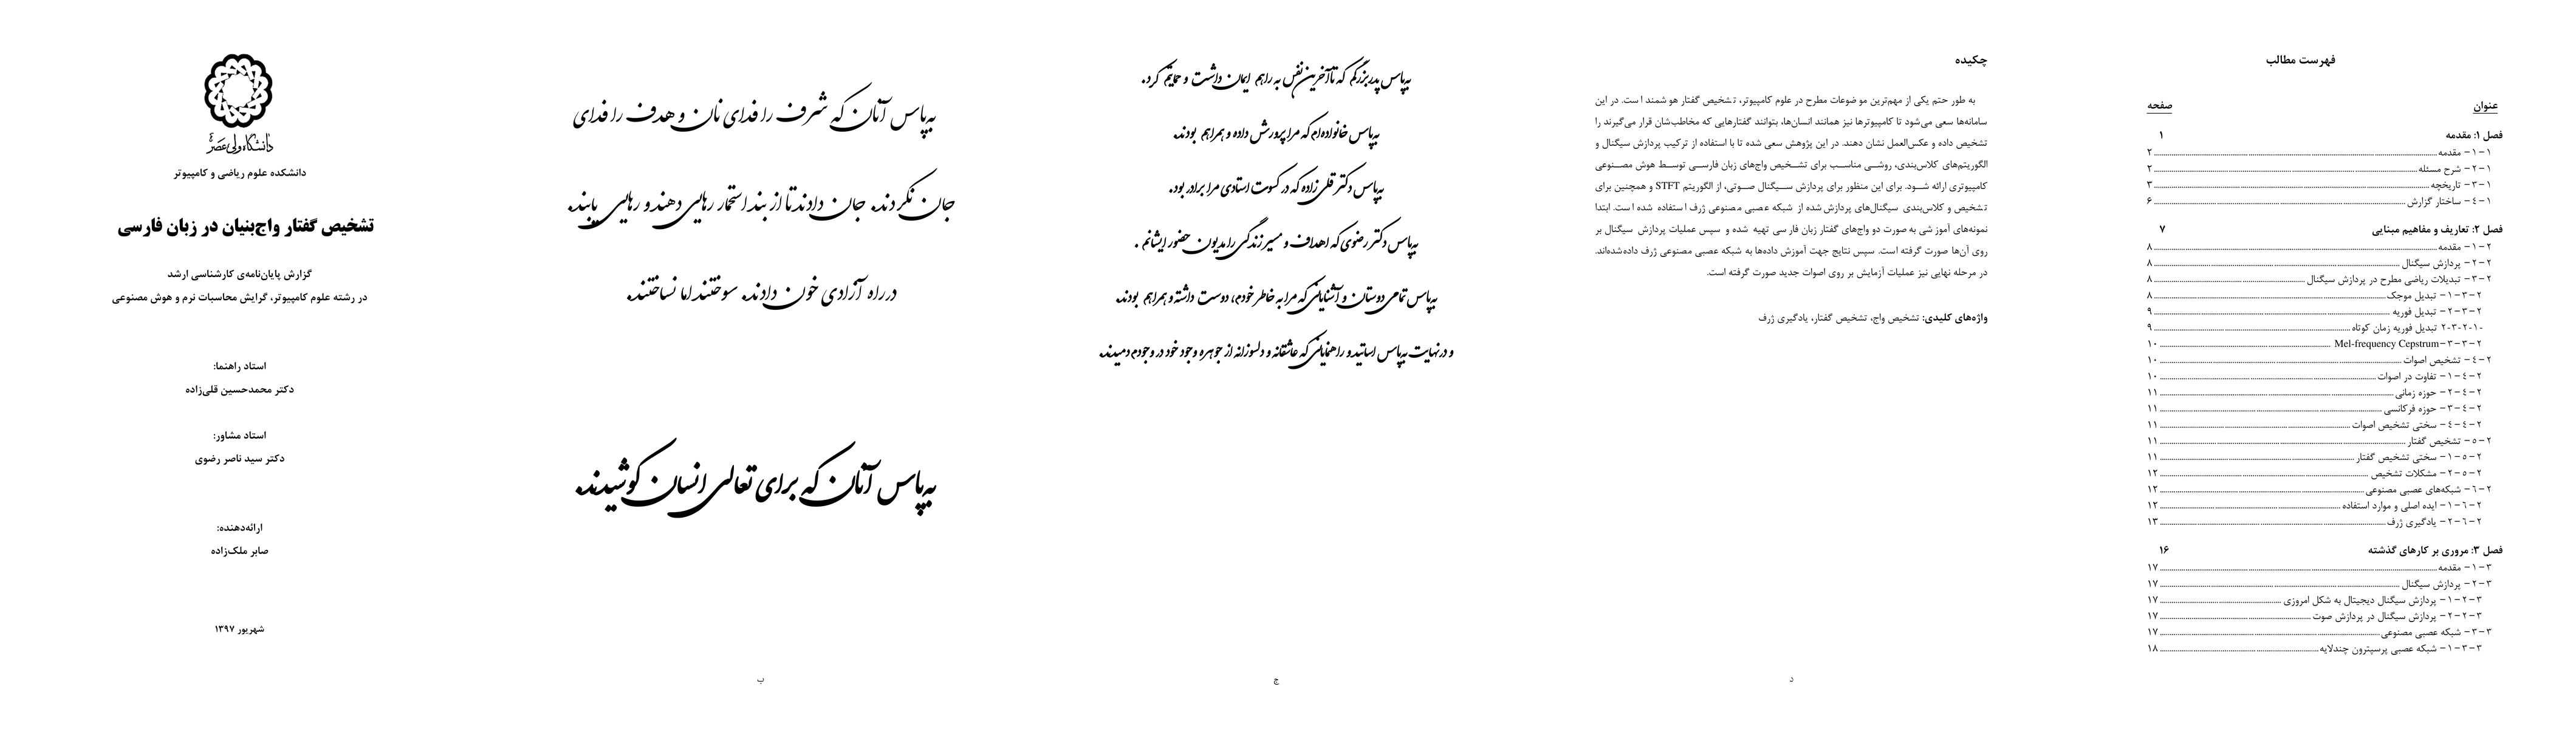 دانشگاه ولی‌عصر
دانشکده علوم ریاضی و کامپیوتر
تشخیص گفتار واج‌بنیان در زبان فارسی
گزارش پایان‌نامه‌ی کارشناسی ارشد
در رشته علوم کامپیوتر، گرایش محاسبات نرم و هوش مصنوعی
استاد راهنما:
دکتر محمدحسین قلی‌زاده
استاد مشاور:
دکتر سید ناصر رضوی
ارائه‌دهنده:
صابر ملک‌زاده
شهریور ۱۳۹۷
به پاس آنان که شرف را فدای نان و هدف را فدای
جان نکردند. جان دادند تا از بند استحمار رهایی دهند و رهایی یابند.
در راه آزادی خون دادند. سوختند اما نساختند.
به پاس آنان که برای تعالی انسان کوشیدند.
ب
به پاس پدربزرگم که تا آخرین نفس به راهم ایمان داشت و حمایتم کرد.
به پاس خانواده‌ام که مرا پرورش داده و همراهم بودند.
به پاس دکتر قلی‌زاده که در کسوت استادی مرا برادر بود.
به پاس دکتر رضوی که اهداف و مسیر زندگی را مدیون حضور ایشانم .
به پاس تمامی دوستان و آشنایانی که مرا به خاطر خودم، دوست داشته و همراهم بودند.
و در نهایت به پاس اساتید و راهنمایانی که عاشقانه و دلسوزانه از جوهره وجود خود در وجودم دمیدند.
ج
چکیده
به طور حتم یکی از مهم‌ترین موضوعات مطرح در علوم کامپیوتر، تشخیص گفتار هوشمند است. در این
سامانه‌ها سعی می‌شود تا کامپیوترها نیز همانند انسان‌ها، بتوانند گفتارهایی که مخاطب‌شان قرار می‌گیرند را
تشخیص داده و عکس‌العمل نشان دهند. در این پژوهش سعی شده تا با استفاده از ترکیب پردازش سیگنال و
الگوریتم‌های کلاس‌بندی، روشی مناسب برای تشخیص واج‌های زبان فارسی توسط هوش مصنوعی
کامپیوتری ارائه شود. برای این منظور برای پردازش سیگنال صوتی، از الگوریتم STFT و همچنین برای
تشخیص و کلاس‌بندی سیگنال‌های پردازش شده از شبکه عصبی مصنوعی ژرف استفاده شده است. ابتدا
نمونه‌های آموزشی به صورت دو واج‌های گفتار زبان فارسی تهیه شده و سپس عملیات پردازش سیگنال بر
روی آن‌ها صورت گرفته است. سپس نتایج جهت آموزش داده‌ها به شبکه عصبی مصنوعی ژرف داده‌شده‌اند.
در مرحله نهایی نیز عملیات آزمایش بر روی اصوات جدید صورت گرفته است.
واژه‌های کلیدی: تشخیص واج، تشخیص گفتار، یادگیری ژرف
د
فهرست مطالب
عنوان صفحه
فصل ۱: مقدمه ۱
۱-۱- مقدمه ۲
۱-۲- شرح مسئله ۲
۱-۳- تاریخچه ۳
۱-۴- ساختار گزارش ۶
فصل ۲: تعاریف و مفاهیم مبنایی ۷
۲-۱- مقدمه ۸
۲-۲- پردازش سیگنال ۸
۲-۳- تبدیلات ریاضی مطرح در پردازش سیگنال ۸
۲-۳-۱- تبدیل موجک ۸
۲-۳-۲- تبدیل فوریه ۹
۲-۳-۲-۱- تبدیل فوریه زمان کوتاه ۹
۲-۳-۳- Mel-frequency Cepstrum ۱۰
۲-۴- تشخیص اصوات ۱۰
۲-۴-۱- تفاوت در اصوات ۱۰
۲-۴-۲- حوزه زمانی ۱۱
۲-۴-۳- حوزه فرکانسی ۱۱
۲-۴-۴- سختی تشخیص اصوات ۱۱
۲-۵- تشخیص گفتار ۱۱
۲-۵-۱- سختی تشخیص گفتار ۱۱
۲-۵-۲- مشکلات تشخیص ۱۲
۲-۶- شبکه‌های عصبی مصنوعی ۱۲
۲-۶-۱- ایده اصلی و موارد استفاده ۱۲
۲-۶-۲- یادگیری ژرف ۱۳
فصل ۳: مروری بر کارهای گذشته ۱۶
۳-۱- مقدمه ۱۷
۳-۲- پردازش سیگنال ۱۷
۳-۲-۱- پردازش سیگنال دیجیتال به شکل امروزی ۱۷
۳-۲-۲- پردازش سیگنال در پردازش صوت ۱۷
۳-۳- شبکه عصبی مصنوعی ۱۷
۳-۳-۱- شبکه عصبی پرسپترون چندلایه ۱۸